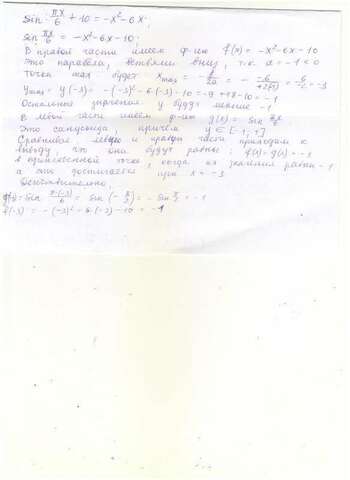 sin πx/6 + 10 = -x² - 6x.
sin πx/6 = -x² - 6x - 10.
В правой части имеем ф-ию f(x) = -x² - 6x - 10
Это парабола, ветвями вниз, т.к. a = -1 < 0
Точка max будет x max = -b/2a = - -6/+2(-1) = -6/2 = -3
y max = y(-3) = -(-3)² - 6·(-3) - 10 = -9 + 18 - 10 = -1
Остальные значения y будут меньше -1
В левой части имеем ф-ию g(x) = sin πx/6
Это синусоида, причём y ∈ [-1; 1]
Сравнивая левую и правую части приходим к
выводу, что они будут равны: f(x) = g(x) = -1
в точке, когда их значения равны -1
а это достигается при x = -3
Действительно,
g(-3) = sin π·(-3)/6 = sin(-π/2) = -sin π/2 = -1
f(-3) = -(-3)² - 6·(-3) - 10 = -1